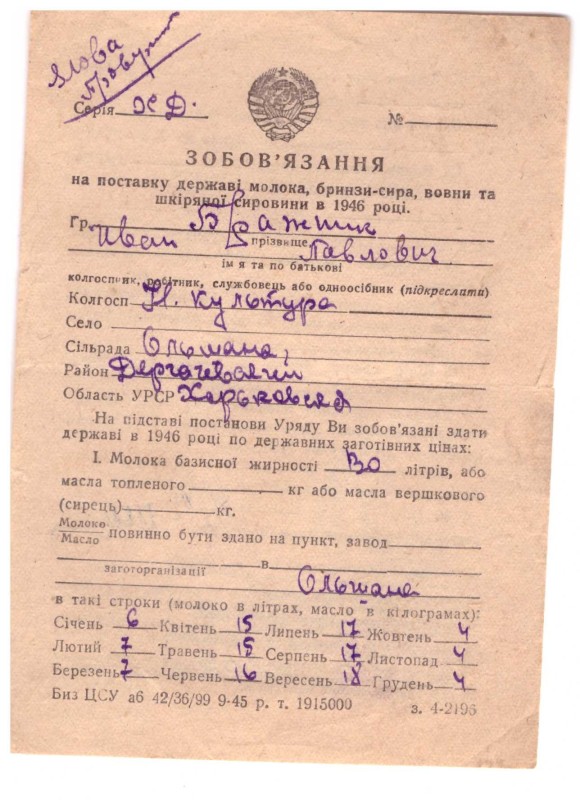 Серія ХД. №
ЗОБОВ'ЯЗАННЯ
на поставку державі молока, бринзи-сира, вовни та
шкіряної сировини в 1946 році.
Гр. Бражник
прізвище
Иван Павлович
ім'я та по батькові
колгоспник, робітник, службовець або одноосібник (підкреслити)
Колгосп Н. культура
Село
Сільрада Ольшана,
Район
Область УРСР Харьковская
На підставі постанови Уряду Ви зобов'язані здати
державі в 1946 році по державних заготівних цінах:
I. Молока базисної жирності літрів, або
масла топленого кг або масла вершкового
(сирець) кг.
Молоко
Масло повинно бути здано на пункт, завод
в
заготорганізації Ольшана
в такі строки (молоко в літрах, масло в кілограмах):
Січень 6 Квітень 15 Липень 17 Жовтень 4
Лютий 7 Травень 15 Серпень 17 Листопад 4
Березень 7 Червень 16 Вересень 18 Грудень 4
Биз ЦСУ аб 42/36/99 9-45 р. т. 1915000 з. 4-2196